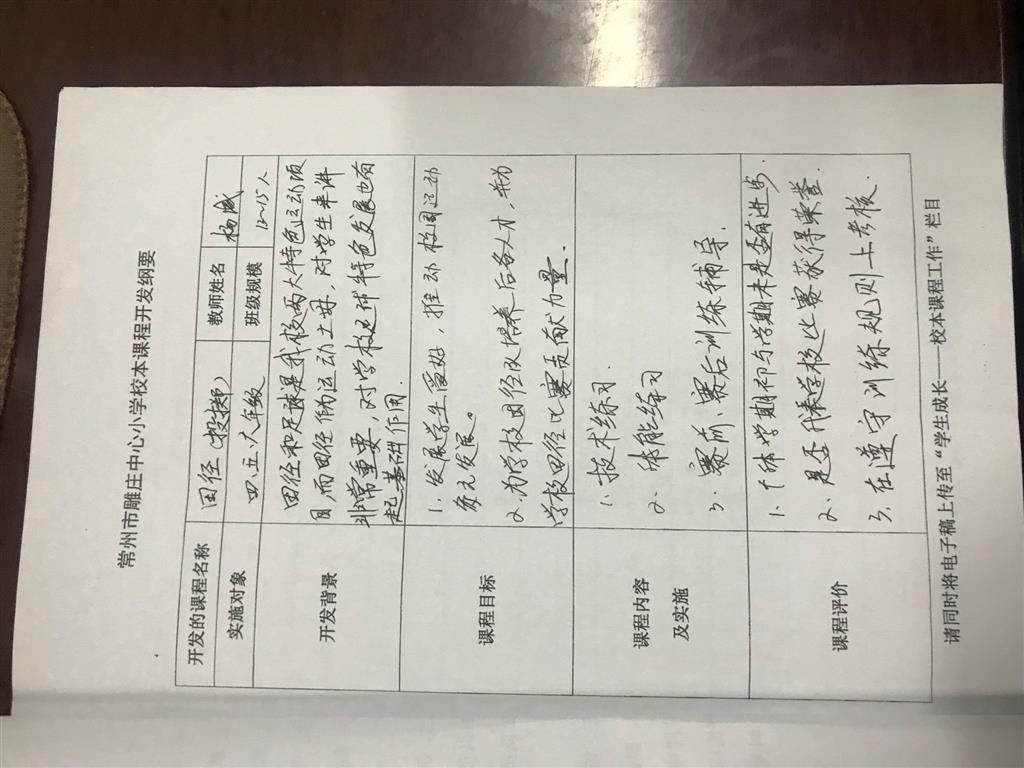 常州市雕庄中心小学校本课程开发纲要
开发的课程名称 田径(投掷) 教师姓名 杨威
实施对象 四、五、六年级 班级规模 12~15人
开发背景
田径和足球是我校两大特色运动项
目,而田径作为运动之母,对学生来讲
非常重要,对学校足球特色发展也有
起基础作用.
课程目标
1. 发展学生爱好,推动校园运动
多元发展。
2. 为学校田径队培养后备人才,并为
学校田径比赛贡献力量.
课程内容
及实施
1. 技术练习.
2. 体能练习
3. 赛前、赛后训练辅导.
课程评价
1. 个体学期初与学期末是否有进步.
2. 是否代表学校比赛获得荣誉.
3. 在遵守训练规则上考核.
请同时将电子稿上传至“学生成长——校本课程工作”栏目